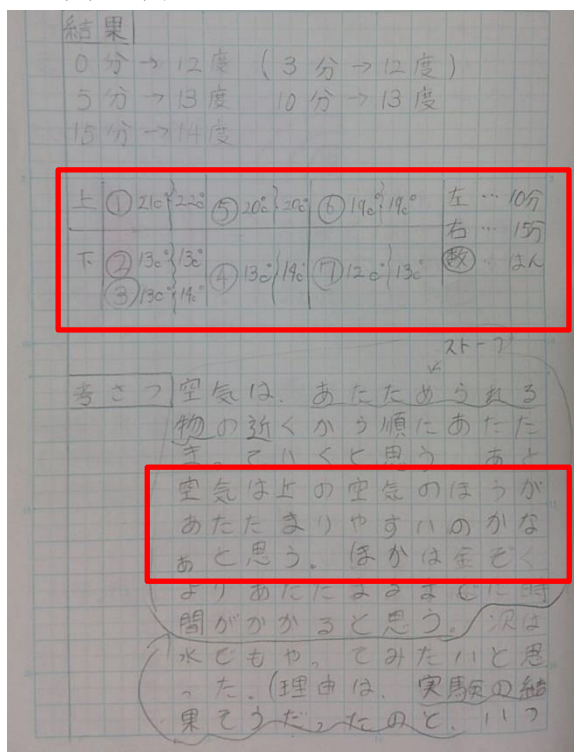 結果
0分→12度(3分→12度)
5分→13度 10分→13度
15分→14度
上 ①21c°}22c° ⑤20c°}20c° ⑥19c°}19c° 左…10分
右…15分
下 ②13c°}13c° ④13c°}14c° ⑦12c°}13c° 数…はん
③13c°}14c°
ストーブ
考さつ 空気は、あたためられる
物の近くから順にあたた
まっていくと思う。あと
空気は上の空気のほうが
あたたまりやすいのかな
ぁと思う。ほかは金ぞく
よりあたたまるまでに時
間がかかると思う。次は
水でもやってみたいと思
った。(理由は、実験の結
果そうだったのと、いつ